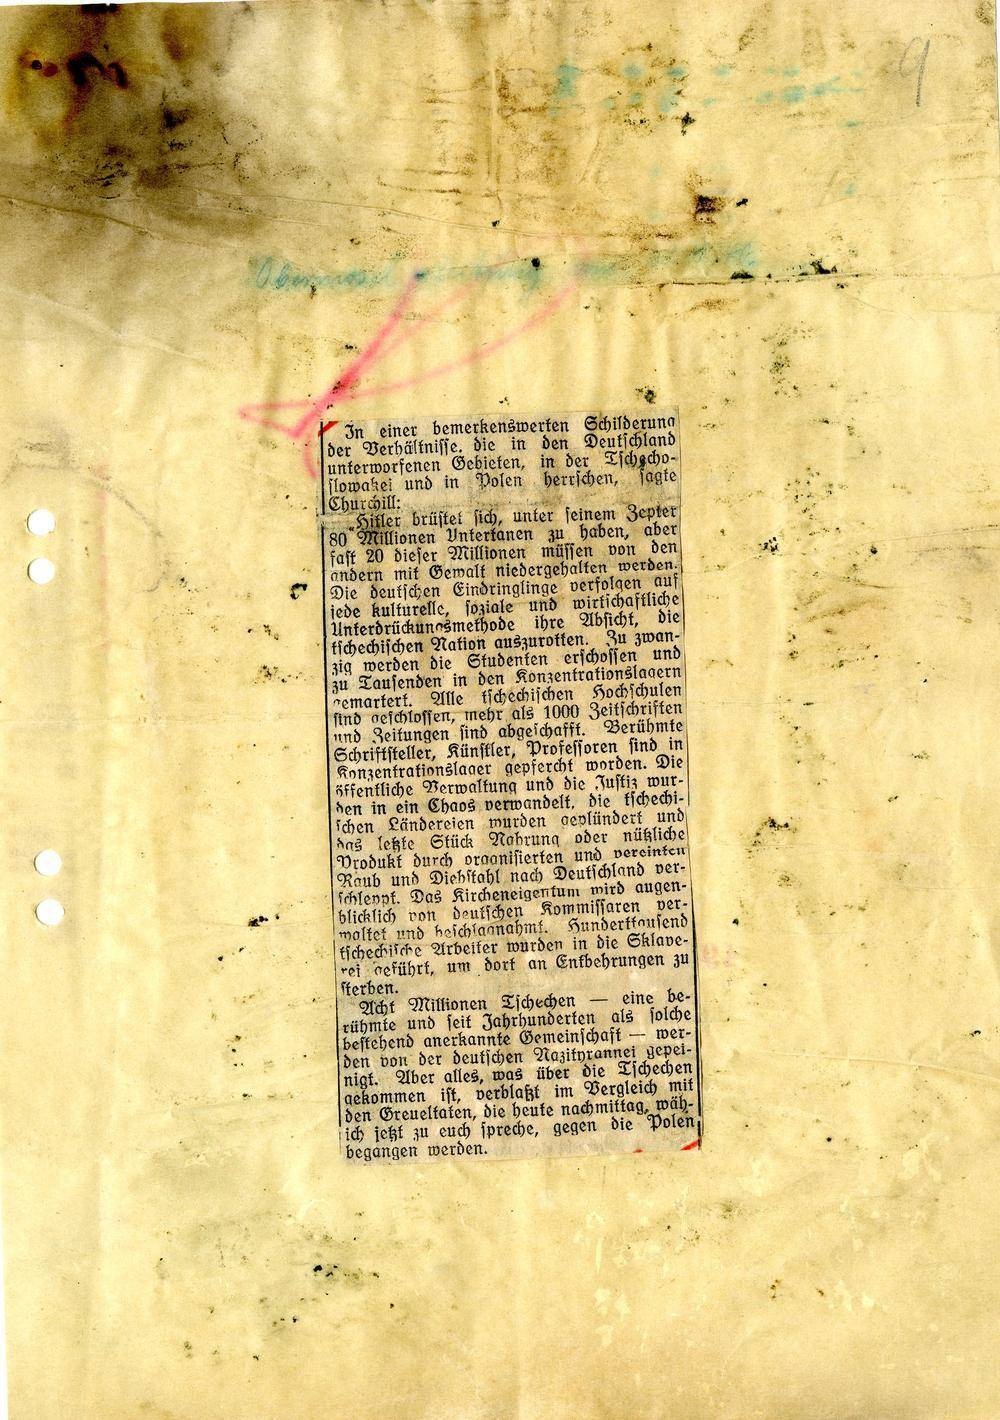 9
In einer bemerkenswerten Schilderung
der Verhältnisse, die in den Deutschland
unterworfenen Gebieten, in der Tschecho-
slowakei und in Polen herrschen, sagte
Churchill:
"Hitler brüstet sich, unter seinem Zepter
80 Millionen Untertanen zu haben, aber
fast 20 dieser Millionen müssen von den
andern mit Gewalt niedergehalten werden.
Die deutschen Eindringlinge verfolgen auf
jede kulturelle, soziale und wirtschaftliche
Unterdrückungsmethode ihre Absicht, die
tschechischen Nation auszurotten. Zu zwan-
zig werden die Studenten erschossen und
zu Tausenden in den Konzentrationslagern
gemartert. Alle tschechischen Hochschulen
sind geschlossen, mehr als 1000 Zeitschriften
und Zeitungen sind abgeschafft. Berühmte
Schriftsteller, Künstler, Professoren sind in
Konzentrationslager gepfercht worden. Die
öffentliche Verwaltung und die Justiz wur-
den in ein Chaos verwandelt, die tschechi-
schen Ländereien wurden geplündert und
das letzte Stück Nahrung oder nützliche
Produkt durch organisierten und vereinten
Raub und Diebstahl nach Deutschland ver-
schleppt. Das Kircheneigentum wird augen-
blicklich von deutschen Kommissaren ver-
waltet und beschlagnahmt. Hunderttausend
tschechische Arbeiter wurden in die Sklave-
rei geführt, um dort an Entbehrungen zu
sterben.
Acht Millionen Tschechen — eine be-
rühmte und seit Jahrhunderten als solche
bestehend anerkannte Gemeinschaft — wer-
den von der deutschen Nazityrannei gepei-
nigt. Aber alles, was über die Tschechen
gekommen ist, verblaßt im Vergleich mit
den Greueltaten, die heute nachmittag, wäh-
ich jetzt zu euch spreche, gegen die Polen
begangen werden.